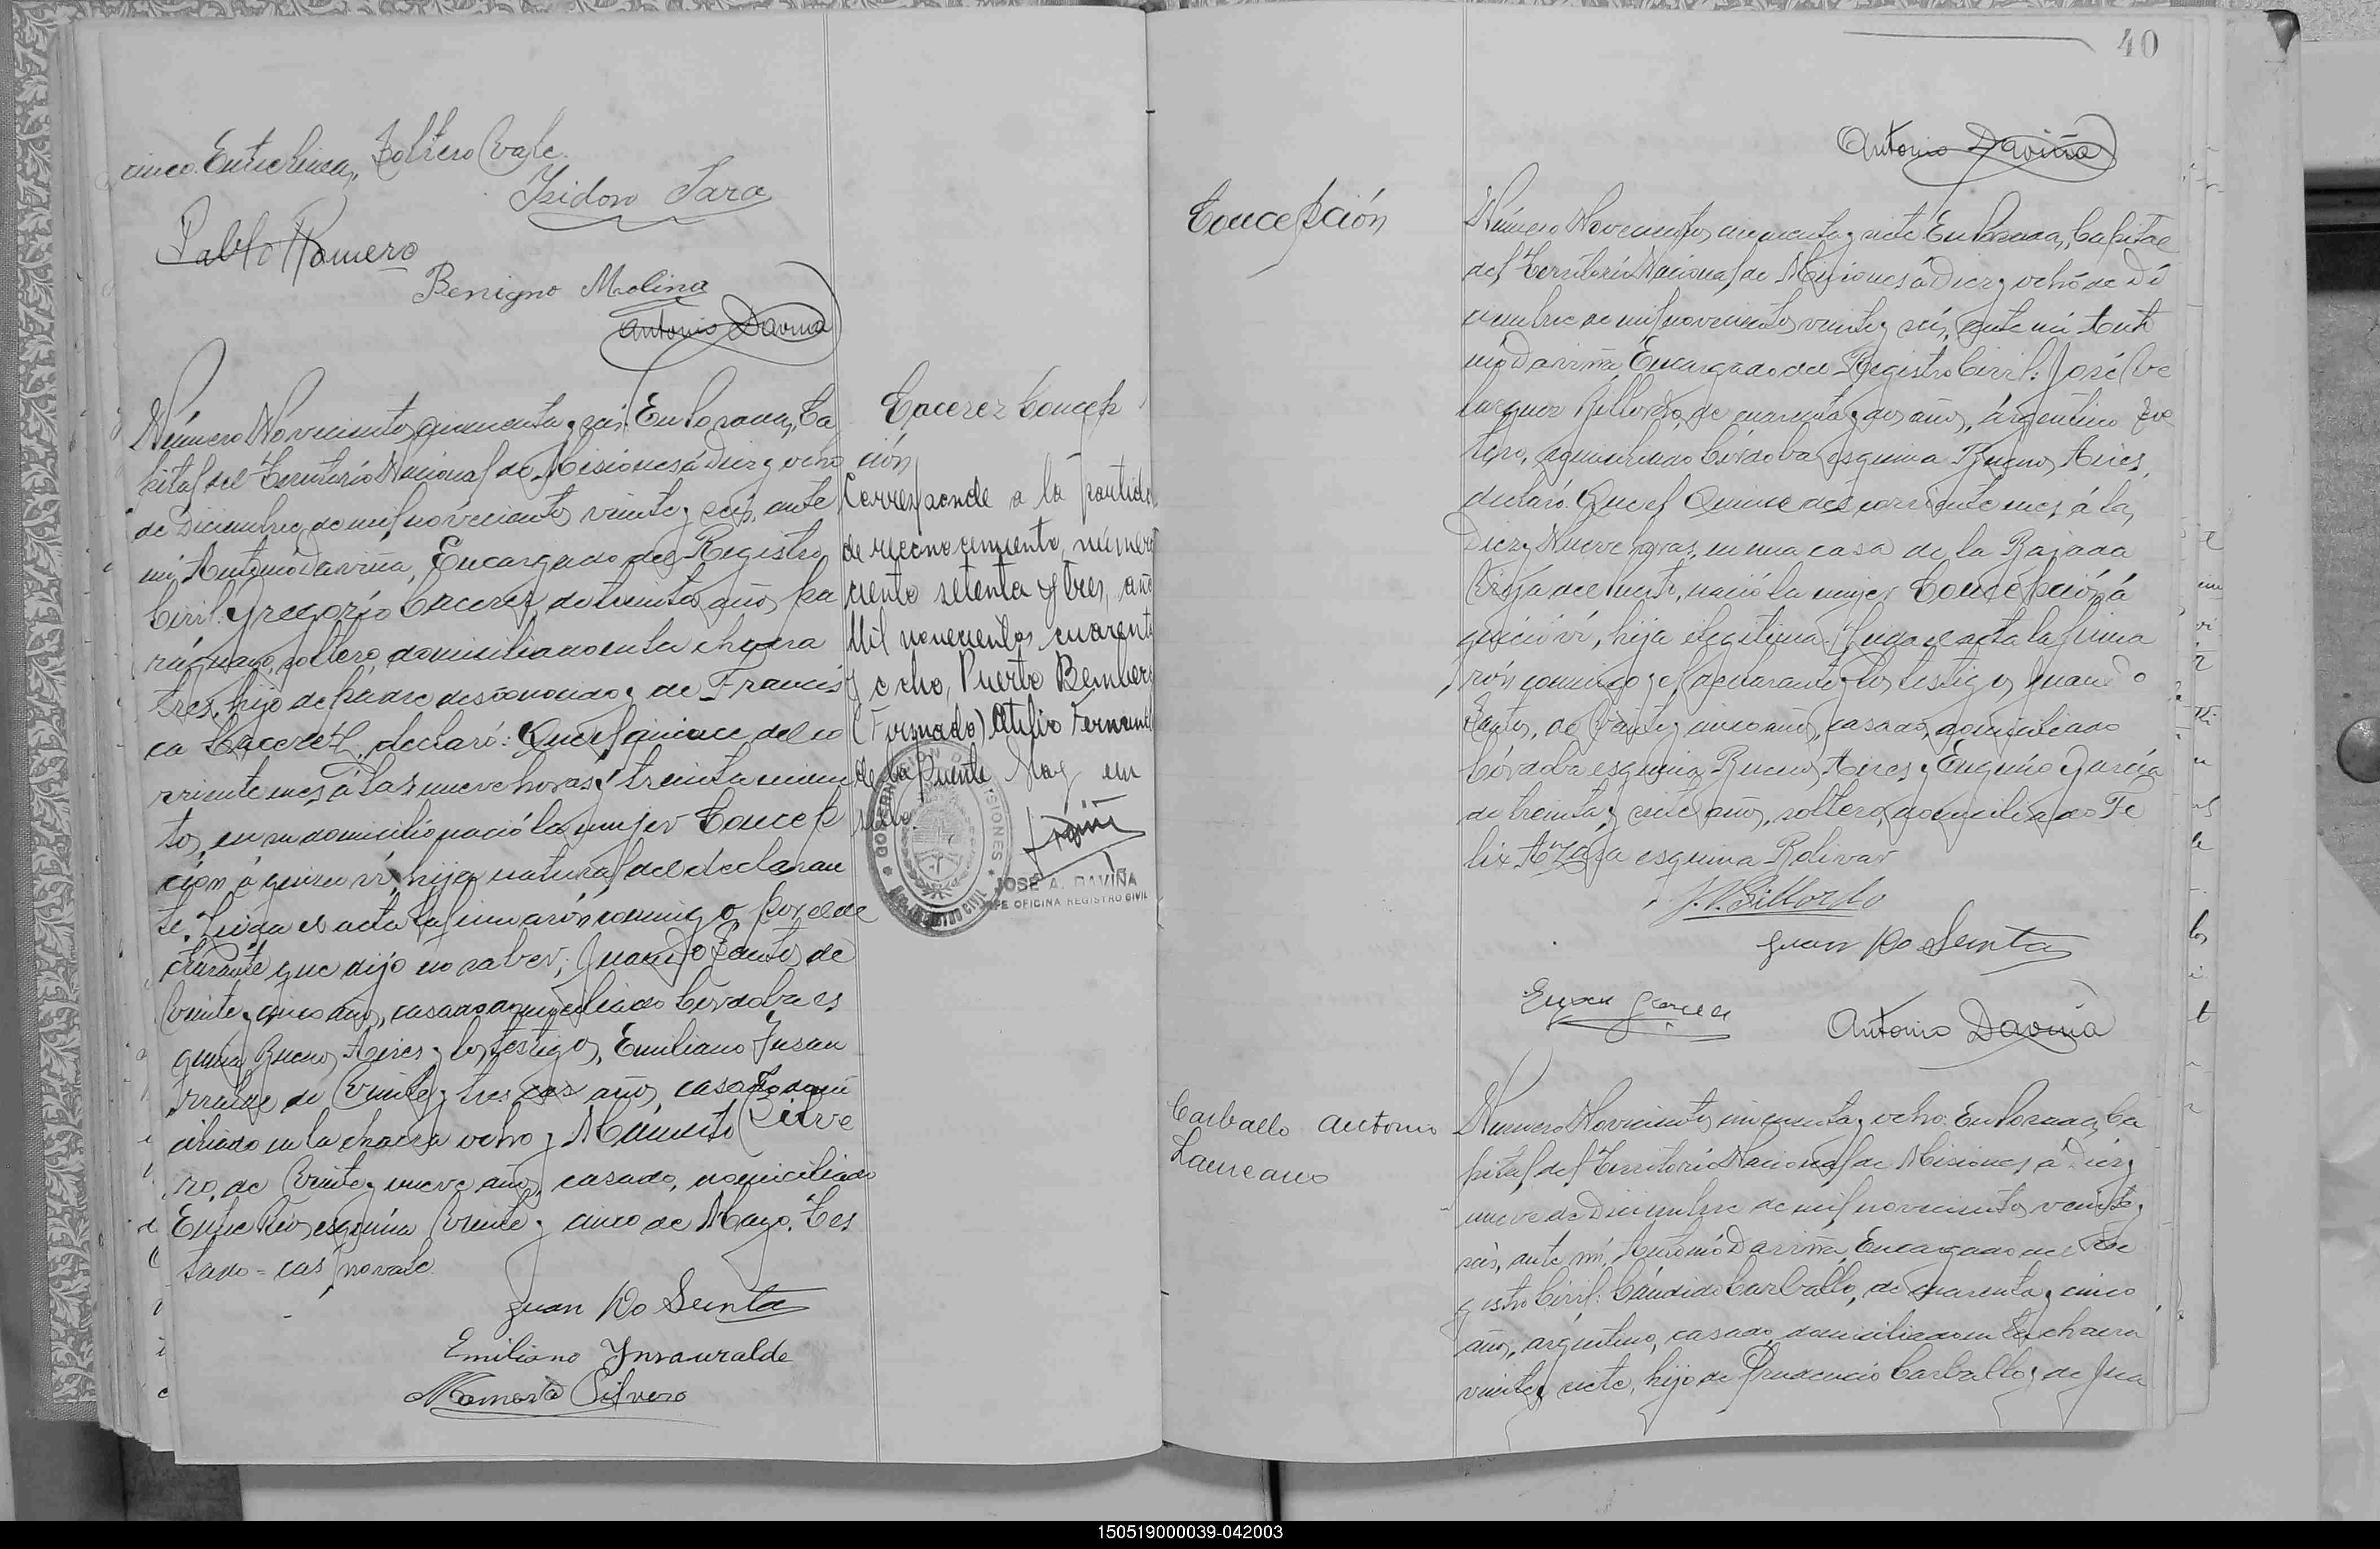 cinco. Entrelinea, Soltero. Vale.
Isidoro Jara
Pablo Romero
Benigno Molina
Antonio Daviña
Número Novecientos cincuenta y seis: En Posadas, Ca
pital del Territorio Nacional de Misiones á Diez y ocho
de Diciembre de mil novecientos veinte y seis, ante
mi, Antonio Daviña, Encargado del Registro
Civil: Gregorio Caceres, de treinta años, pa
raguayo, soltero, domiciliado en la chacra
tres, hijo de padre desconocido y de Francis
ca Caceres, declaró: Que el quince del co
rriente mes á las nueve horas y treinta minu
tos, en su domicilio nació la mujer Concep
ción, á quien ví, hija natural del declaran
te. Leida el acta la firmarón conmigo por el de
clarante que dijo no saber, Juan do Santos de
Veinte y cinco años, casado domiciliado Córdoba es
quina Buenos Aires y los testigos, Emiliano Insau
rralde de Veinte y tres cas años, casado domi
ciliado en la chacra ocho y Mamerto Silve
ro, de Veinte y nueve años, casado, domiciliado
Entre Rios esquina Veinte y cinco de Mayo. Tes
tado = cas no vale.
Juan Do Santos
Emiliano Ynsaurralde
Mamerto Silvero
Caceres Concep
ción
Corresponde a la partida
de reconocimiento, número
ciento setenta y tres, año
Mil novecientos cuarenta
y ocho, Puerto Bemberg
(Firmado) Atilio Fernand
de la Puente Hay un
sello.
JOSÉ A. DAVIÑA
JEFE OFICINA REGISTRO CIVIL
40
Antonio Daviña
Concepción
Número Novecientos cincuenta y siete En Posadas, Capital
del Territorio Nacional de Misiones á Diez y ocho de Di
ciembre de mil novecientos veinte y seis, ante mi Anto
nio Daviña Encargado del Registro Civil: José Ve
lazquez Billordo, de cuarenta y dos años, argentino sol
tero, domiciliado Córdoba esquina Buenos Aires,
declaró: Que el Quince del corriente mes, á las
Diez y Nueve horas, en una casa de la Bajada
Vieja del puerto, nació la mujer Concepción á
quién ví, hija ilegitima. Leida el acta la firma
rón conmigo, el declarante y los testigos Juan do
Santos, de Veinte y cinco años, casado, domiciliado
Córdoba esquina Buenos Aires y Eugenio García
de treinta y siete años, soltero, domiciliado Fe
lix Azara esquina Bolivar
J. V. Billordo
Juan Do Santos
Eugen Garcia
Antonio Daviña
Carballo Antonio
Laureano
Número Novecientos cincuenta y ocho: En Posadas, Ca
pital del Territorio Nacional de Misiones, á Diez y
nueve de Diciembre de mil novecientos veinte y
seis, ante mi, Antonio Daviña, Encargado del Re
gistro Civil: Cándido Carballo, de cuarenta y cinco
años, argentino, casado, domiciliado en la chacra
veinte y siete, hijo de Prudencio Carballo y de Jua
150519000039-042003